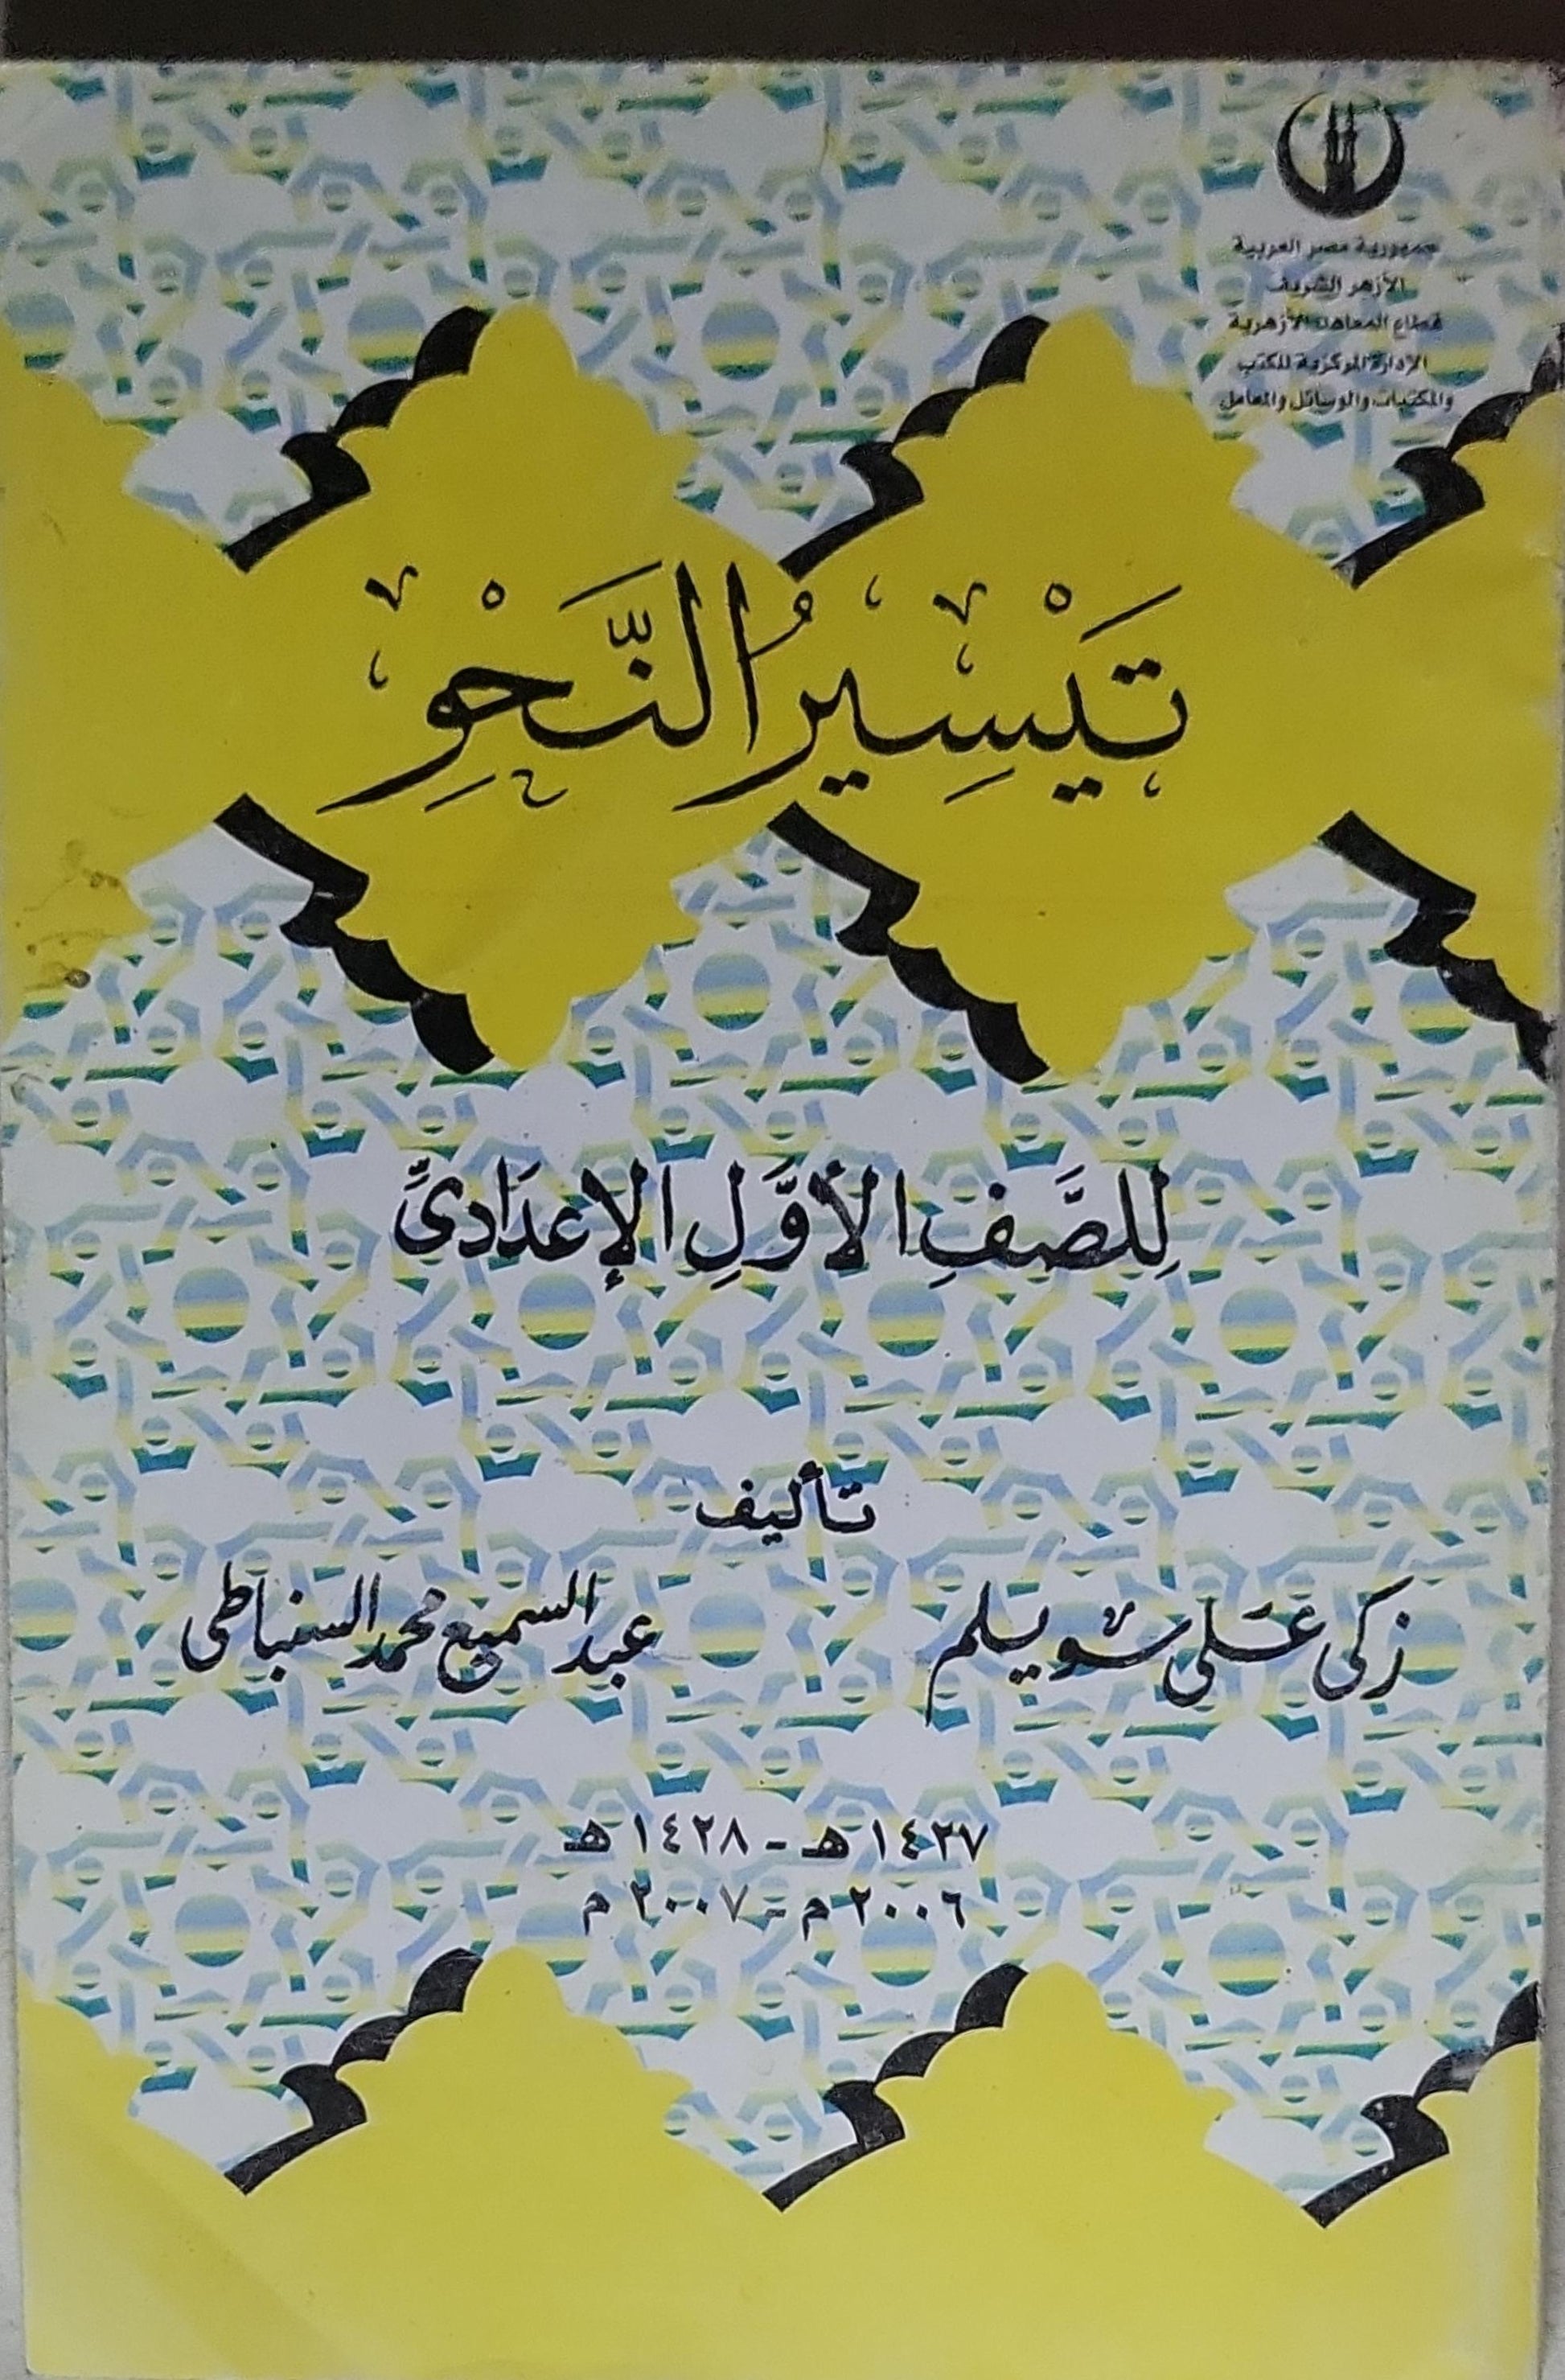 جمهورية مصر العربية
الأزهر الشريف
قطاع المعاهد الأزهرية
الإدارة المركزية للكتب
والمكتبات والوسائل والمعامل
تَيْسِيرُ النَّحْوِ
لِلصَّفِ الأَوَّلِ الإعدَادىِّ
تأليف
زكى عَلى سويلم
عبد السميع محمد السنباطى
١٤٢٧ هـ - ١٤٢٨ هـ
٢٠٠٦ م - ٢٠٠٧ م